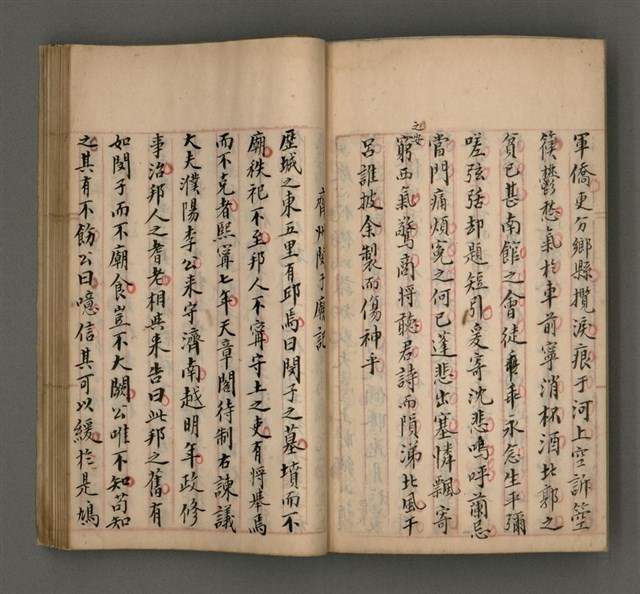 軍僑更分鄉縣攬淚痕于河上空訴箜
篌鬱愁氣於車前寧消杯酒北郭之
貧已甚南館之會徒乖永念生平彌
嗟弦括却題短引爰寄沈悲嗚呼蘭忌
當門痛煩冤之何已蓬悲出塞憐飄寄
之安
窮西氣驚商將聽君詩而隕涕北風干
呂誰披余製而傷神乎
齊州閔子廟記
歷城之東五里有邱焉曰閔子之墓墳而不
廟秩祀不至邦人不寧守土之吏有將舉焉
而不克者熙寧七年天章閣待制右諫議
大夫濮陽李公來守濟南越明年政修
事治邦人之耆老相與來告曰此邦之舊有
如閔子而不廟食豈不大闕公唯不知苟知
之其有不飭公曰噫信其可以緩於是鳩